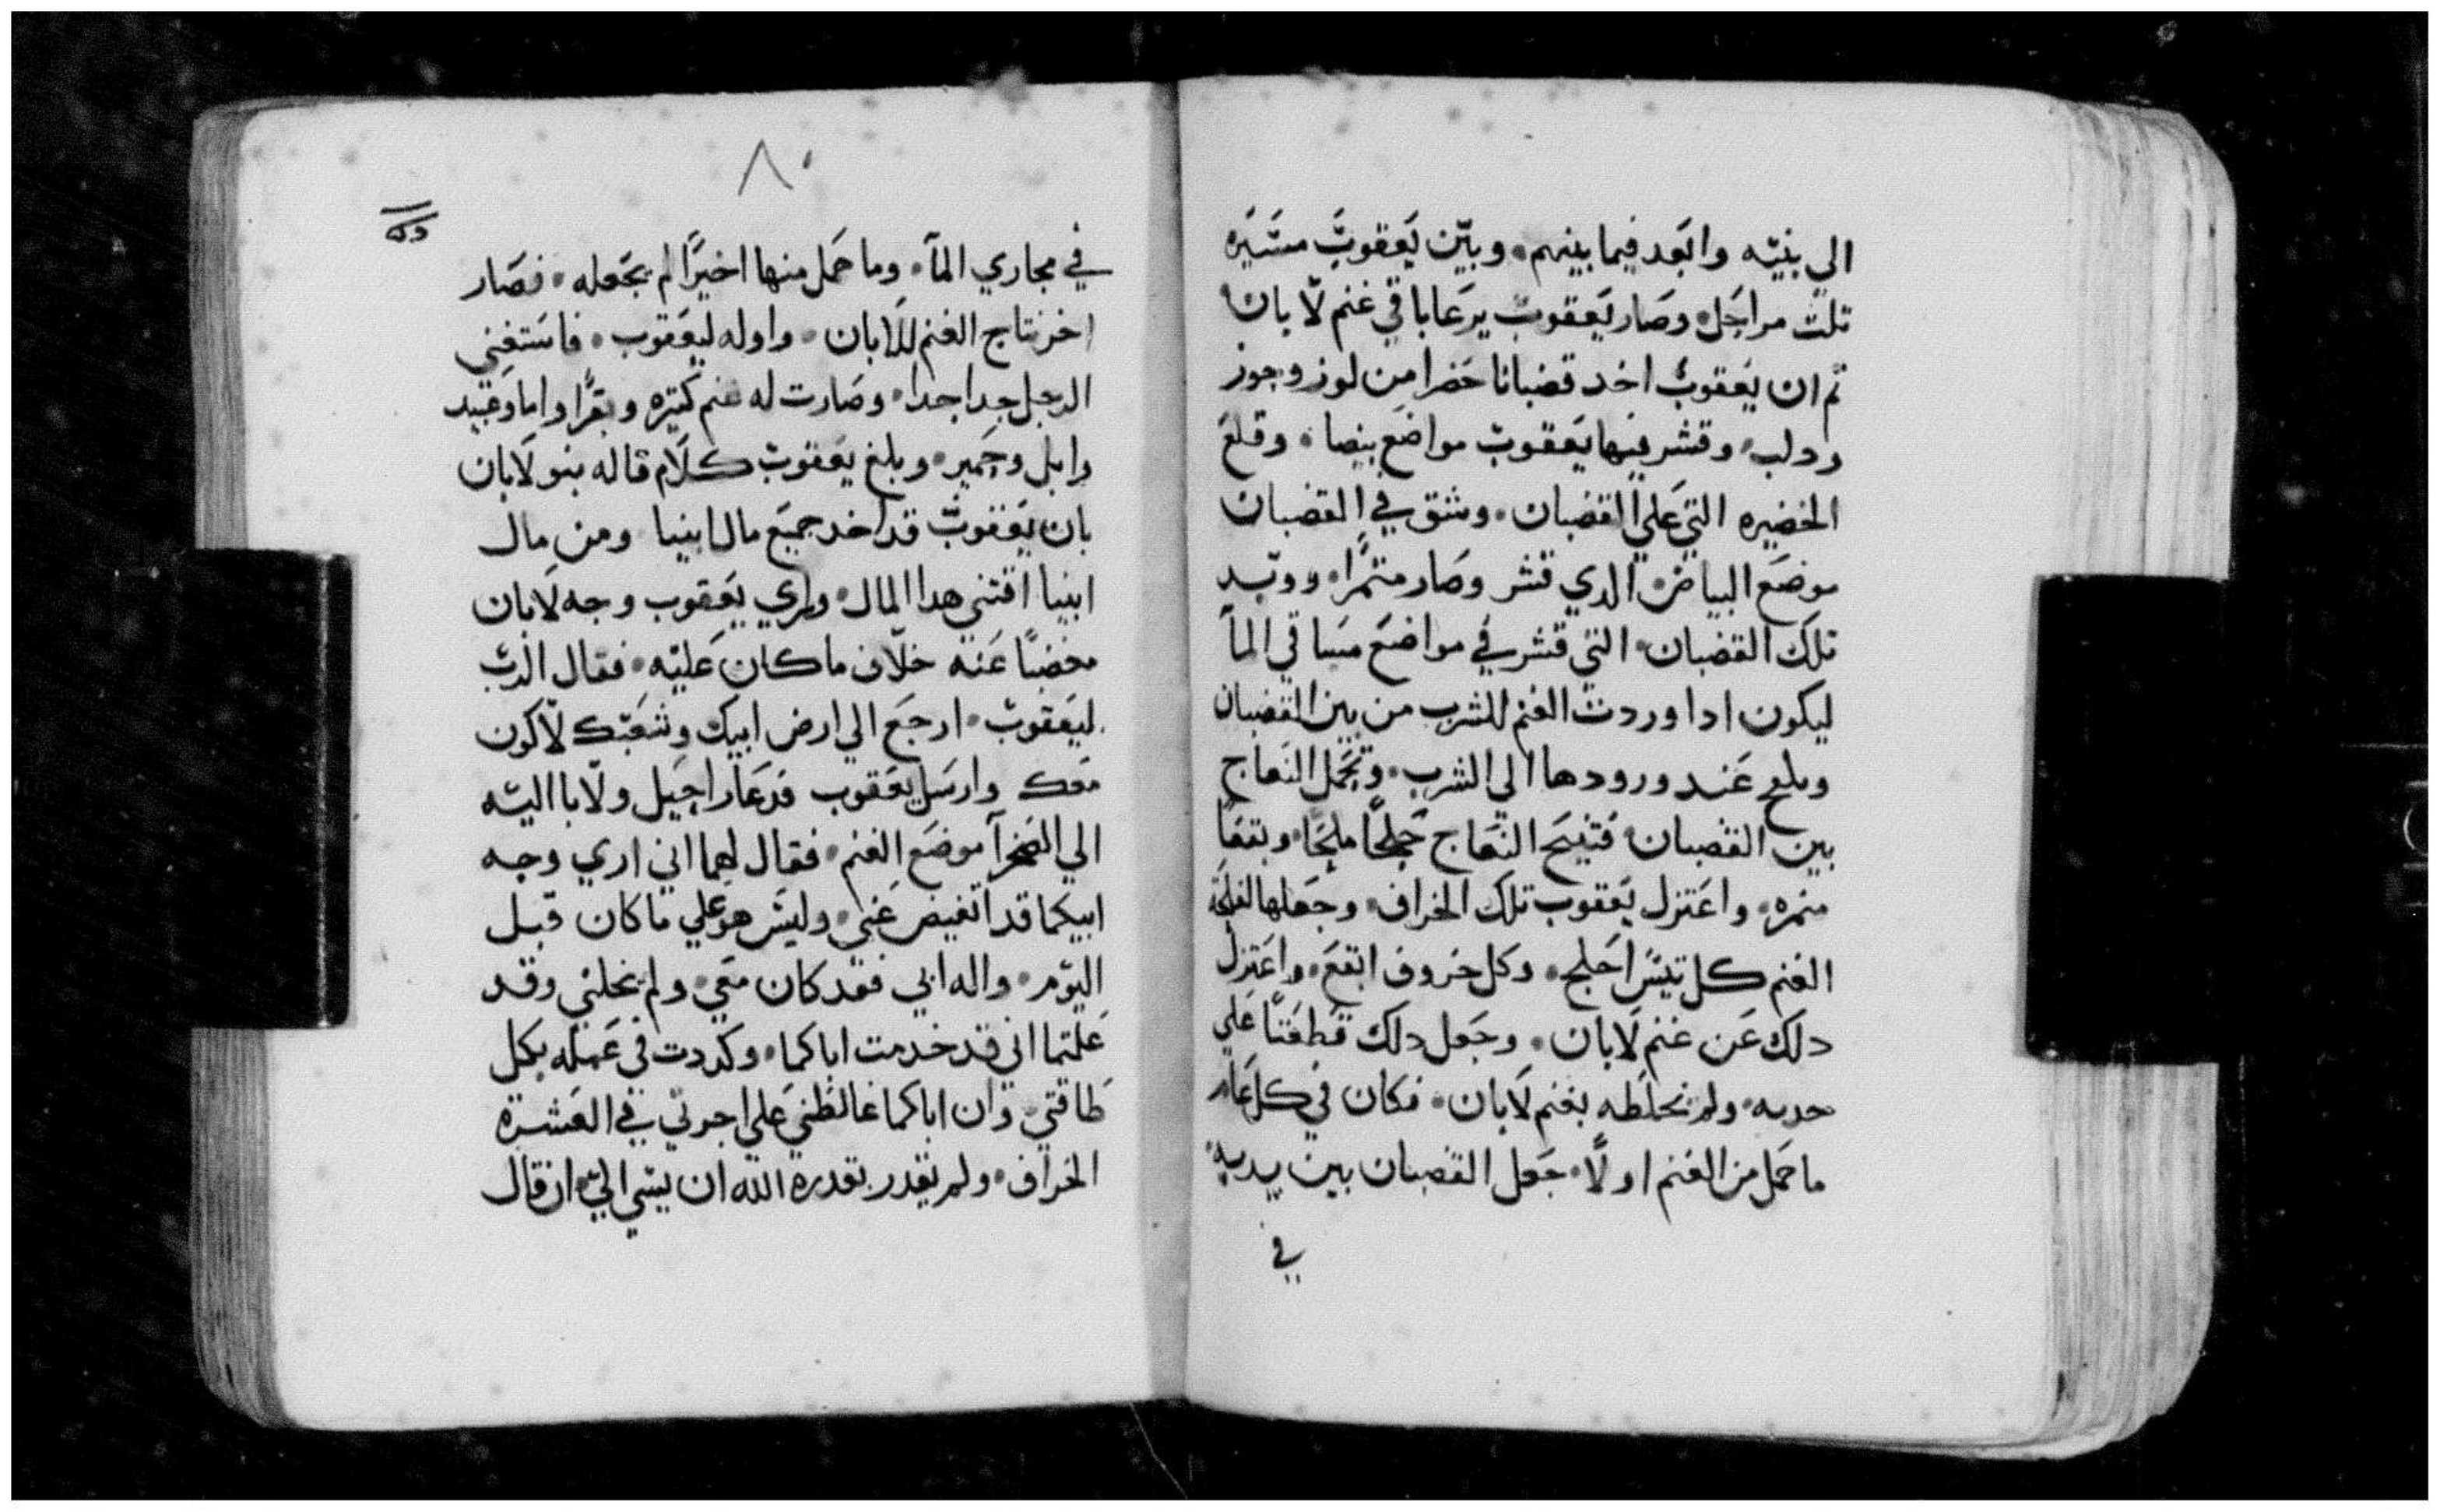 الي بنيه وابعد فيما بينهم وبين يعقوب مسيره
تلت مراحل وصار يعقوب يرعا باقي غنم لابان
تم ان يعقوب اخد قضبانا خضرا من لوز وجوز
ودلب وقشر فيها يعقوب مواضع بيضا وقلع
الخضيره التي علي القضبان وشق في القضبان
موضع البياض الدي قشر وصار منمرا ووتد
تلك القضبان التي قشر في مواضع مساقي المآ
ليكون ادا وردت الغنم للشرب من بين القضبان
عند ورودها الي الشرب وتحمل النعاج
بين القضبان فتنتج النعاج ملحا وبقعا
منمره واعتزل يعقوب تلك الخراف وجعلها
الغنم كل تيس احلج وكل خروف ابقع واعتزل
دلك عن غنم لابان وجعل دلك قطعتا علي
حدته ولم يخلطه بغنم لابان فكان في كل عام
ما حمل من الغنم اولا جعل القضبان بين يديه
في
٨٠
في مجاري المآ وما حمل منها اخيرا لم يجعله فصار
اخر نتاج الغنم للابان واوله ليعقوب فاستغني
الرجل جدا جدا وصارت له غنم كتيره وبقرا واما وعبيد
وابل وحمير وبلغ يعقوب كلام قاله بنو لابان
بان يعقوب قد اخد جميع مال ابينا ومن مال
ابينا اقتني هدا المال وراي يعقوب وجه لابان
مغضبا عنه خلاف ما كان عليه فقال الرب
ليعقوب ارجع الي ارض ابيك وشعبك لاكون
معك وارسل يعقوب فدعا راحيل ولابا اليه
الي الصحرآ موضع الغنم فقال لهما اني اري وجه
ابيكما قد اتغيض عني وليس هو علي ما كان قبل
اليوم واله ابي فقد كان معي ولم يخلني وقد
علمتما اني قد خدمت اباكما وكددت في عمله بكل
طاقتي وان اباكما غالظني علي اجرتي في العشرة
الخراف ولم يقدر بقدرة الله ان يسي الي ان قال